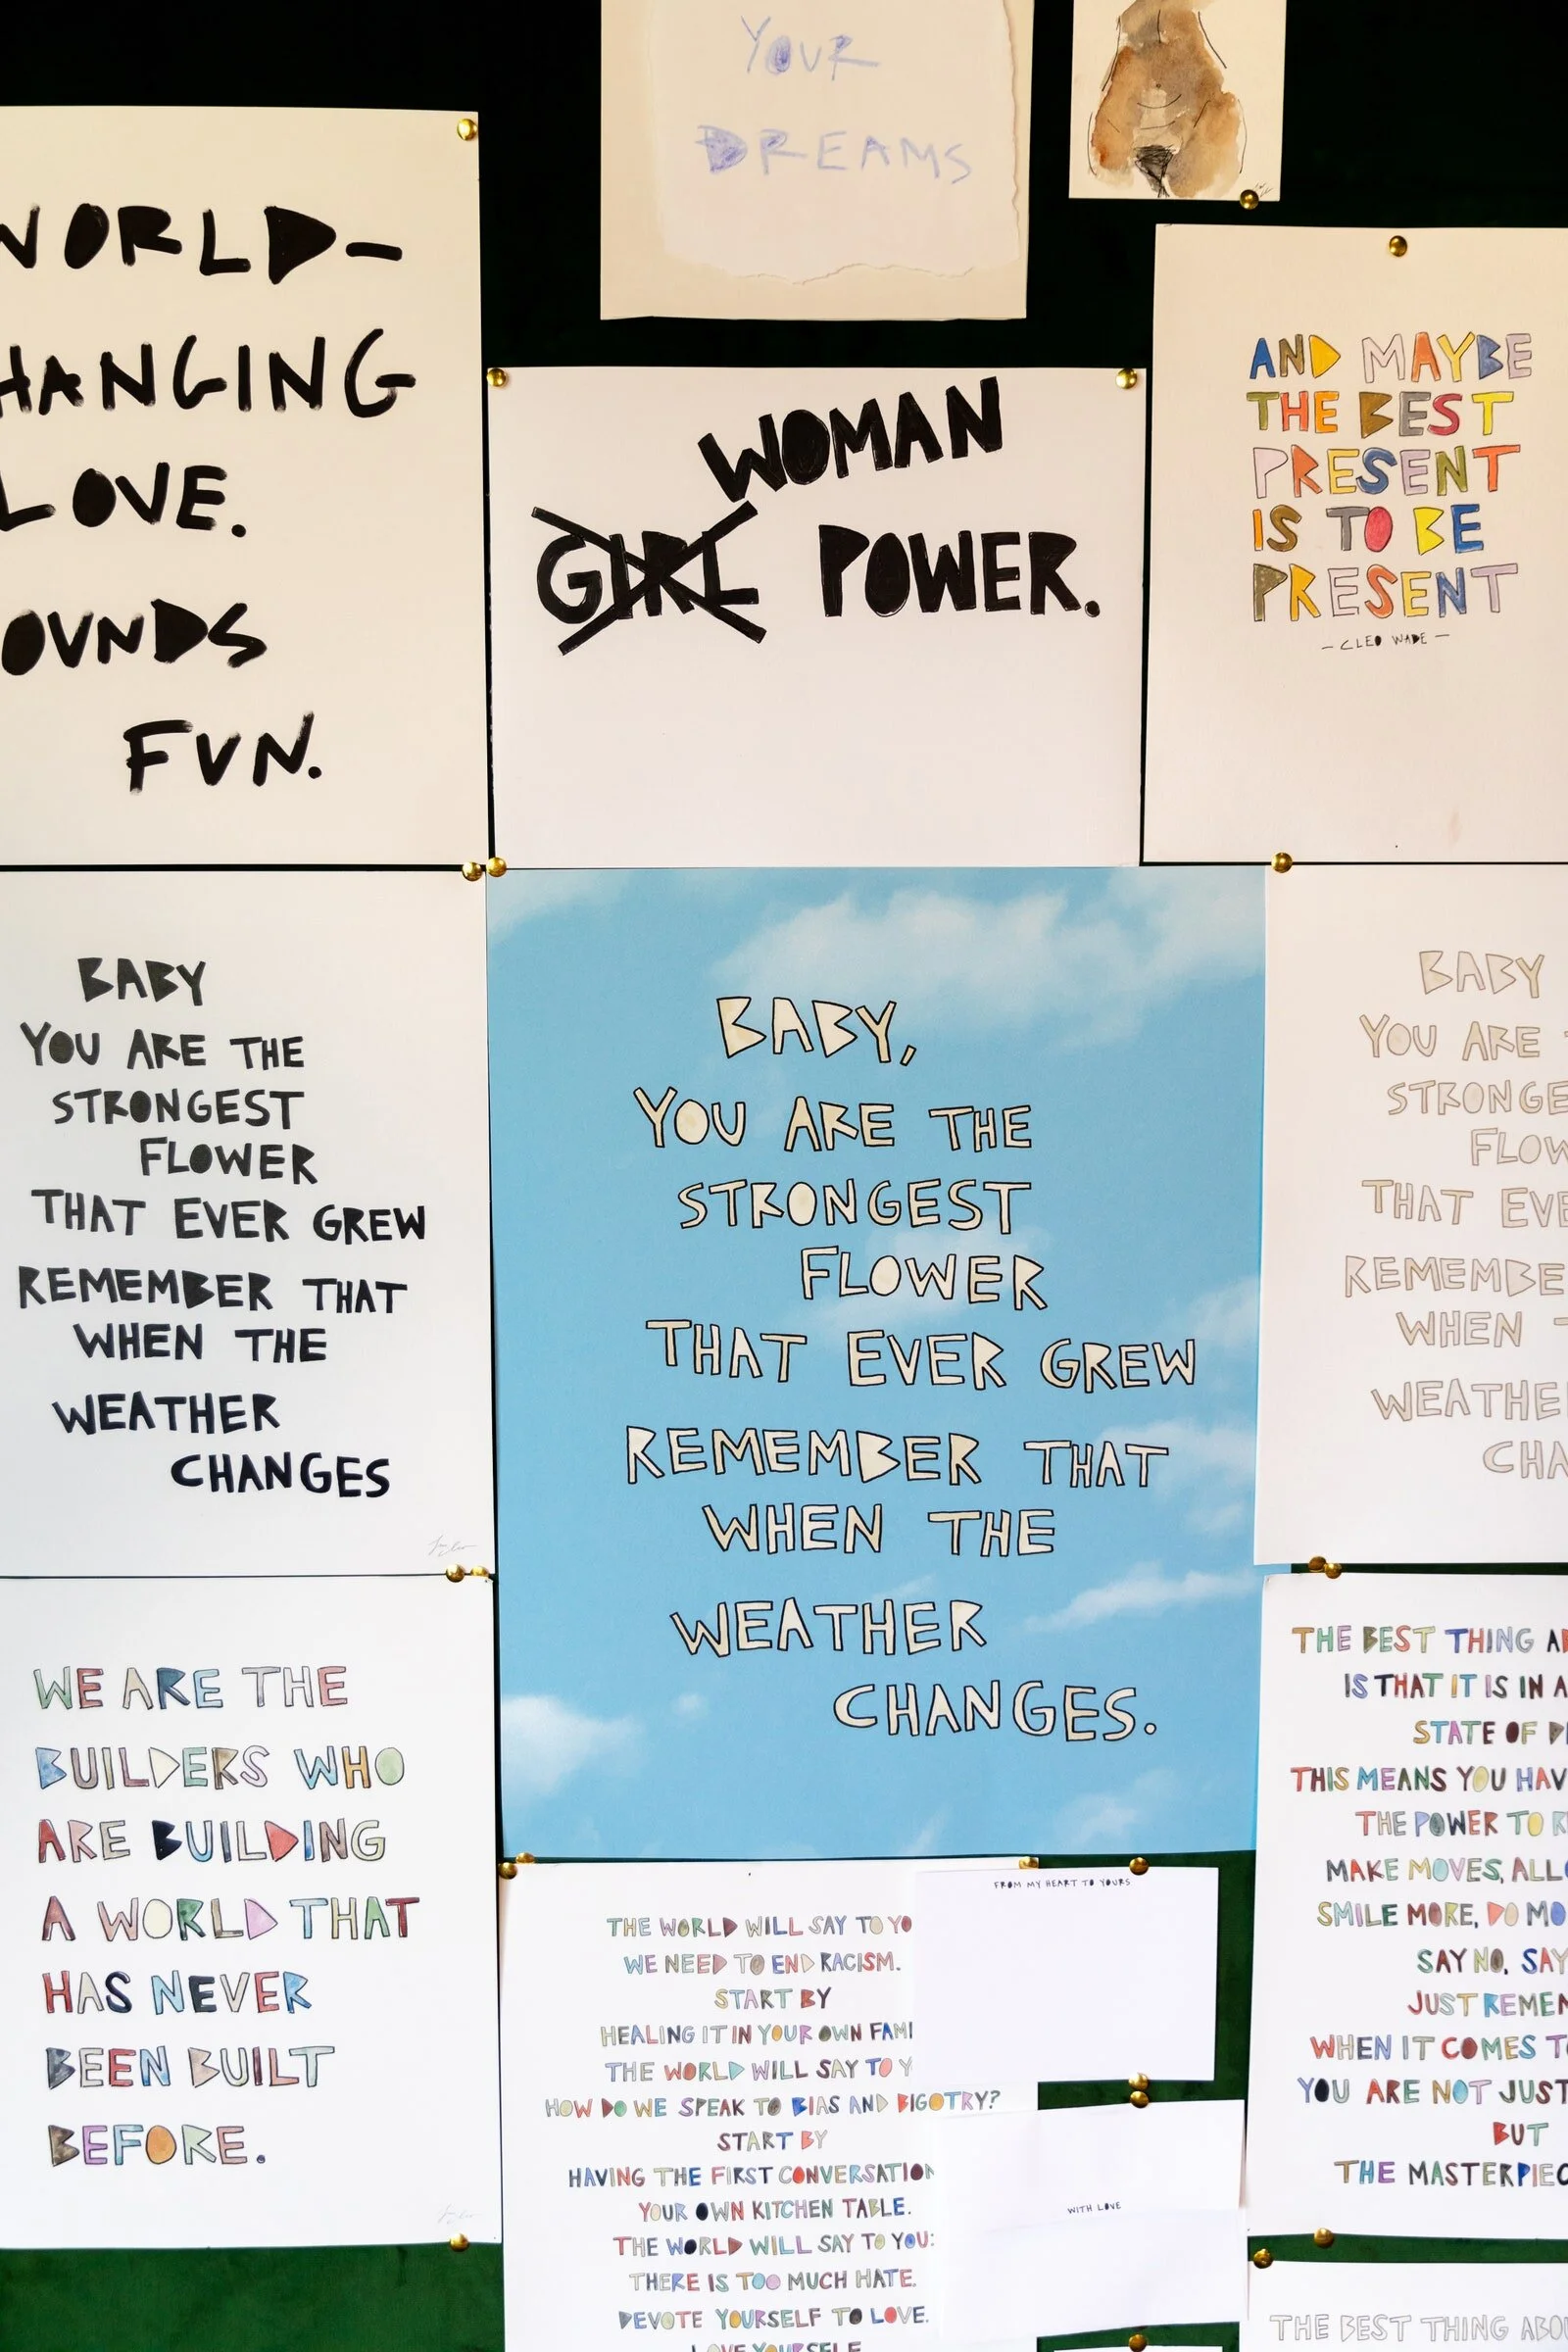 YOUR
DREAMS
WORLD-
HANGING
LOVE.
OUNDS
FUN.
WOMAN
GIRL POWER.
AND MAYBE
THE BEST
PRESENT
IS TO BE
PRESENT
- CLEO WADE -
BABY
YOU ARE THE
STRONGEST
FLOWER
THAT EVER GREW
REMEMBER THAT
WHEN THE
WEATHER
CHANGES
BABY,
YOU ARE THE
STRONGEST
FLOWER
THAT EVER GREW
REMEMBER THAT
WHEN THE
WEATHER
CHANGES.
BABY
YOU ARE
STRONGE
FLOW
THAT EVE
REMEMBE
WHEN
WEATHE
CHA
WE ARE THE
BUILDERS WHO
ARE BUILDING
A WORLD THAT
HAS NEVER
BEEN BUILT
BEFORE.
THE WORLD WILL SAY TO YO
WE NEED TO END RACISM.
START BY
HEALING IT IN YOUR OWN FAMI
THE WORLD WILL SAY TO Y
HOW DO WE SPEAK TO BIAS AND BIGOTRY?
START BY
HAVING THE FIRST CONVERSATION
YOUR OWN KITCHEN TABLE.
THE WORLD WILL SAY TO YOU:
THERE IS TOO MUCH HATE.
DEVOTE YOURSELF TO LOVE.
LOVE YOURSELF
FROM MY HEART TO YOURS
WITH LOVE
THE BEST THING AB
IS THAT IT IS IN A
STATE OF
THIS MEANS YOU HAV
THE POWER TO
MAKE MOVES, ALLO
SMILE MORE, DO MO
SAY NO, SAY
JUST REMEM
WHEN IT COMES T
YOU ARE NOT JUST
BUT
THE MASTERPIEC
THE BEST THING ABO